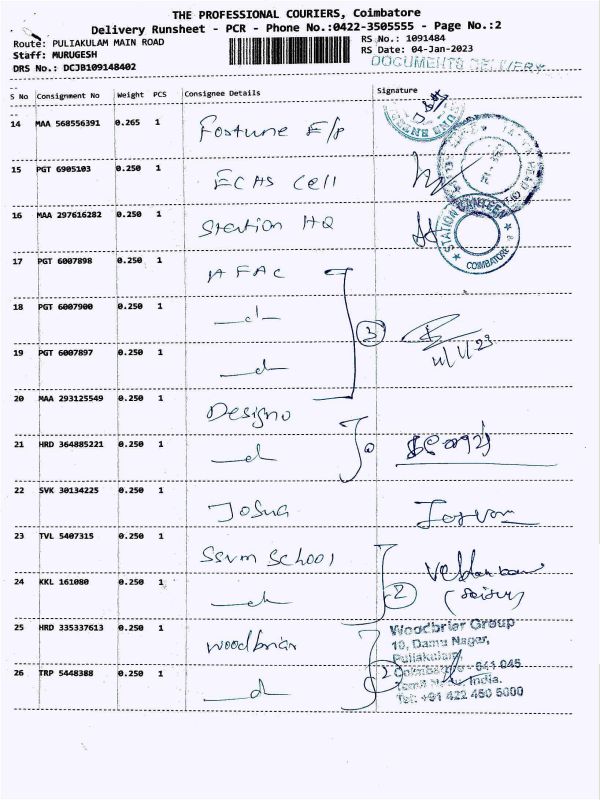 THE PROFESSIONAL COURIERS, Coimbatore
Delivery Runsheet - PCR - Phone No.:0422-3505555 - Page No.:2
Route: PULIAKULAM MAIN ROAD
Staff: MURUGESH
DRS No.: DCJB109148402
RS No.: 1091484
RS Date: 04-Jan-2023
DOCUMENTS DELIVERY
S No Consignment No Weight PCS Consignee Details Signature
14 MAA 568556391 0.265 1 Fortune E/p
15 PGT 6905103 0.250 1 ECHS Cell
16 MAA 297616282 0.250 1 Station HQ
STATION CANTEEN
COIMBATORE
17 PGT 6007898 0.250 1 AFAC
18 PGT 6007900 0.250 1 —d—
19 PGT 6007897 0.250 1 —d— 3
20 MAA 293125549 0.250 1 Designo
21 HRD 364885221 0.250 1 —d—
22 SVK 30134225 0.250 1 Josua
23 TVL 5407315 0.250 1 SSVM School
24 KKL 161080 0.250 1 —d— 2
25 HRD 335337613 0.250 1 Woodbriar
26 TRP 5448388 0.250 1 —d— 2
Woodbriar Group
10, Damu Nagar,
Puliakulam,
Coimbatore - 641 045
Tamil Nadu, India.
Tel: +91 422 460 5000